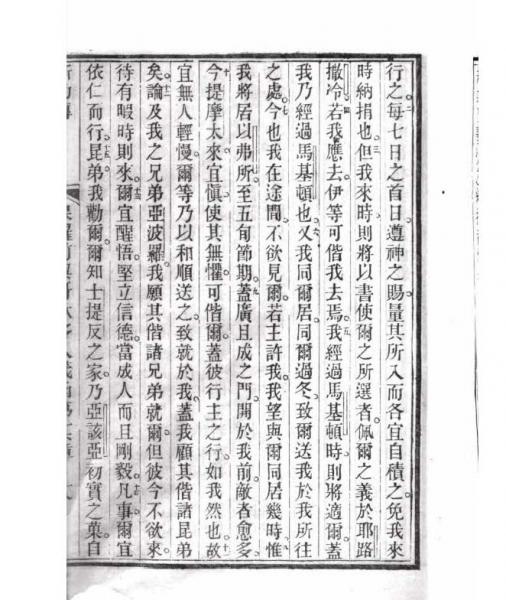 行之每七日之首日遵神之賜量其所入而各宜自積之免我來
時納捐也但我來時則將以書使爾之所選者佩爾之義於耶路
撒冷若我應去伊等可偕我去焉我經過馬基頓時則將適爾蓋
我乃經過馬基頓也又我同爾居同爾過冬致爾送我於我所往
之處今也我在途間不欲見爾若主許我我望與爾同居幾時惟
我將居以弗所至五旬節期蓋廣且成之門開於我前敵者愈多
今提摩太來宜慎使其無懼可偕爾蓋彼行主之行如我然也故
宜無人輕慢爾等乃以和順送之致就於我蓋我顧其偕諸昆弟
矣論及我之兄弟亞波羅我願其偕諸兄弟就爾但彼今不欲來
待有暇時則來爾宜醒悟堅立信德當成人而且剛毅凡事爾宜
依仁而行昆弟我勸爾爾知士提反之家乃亞該亞初實之菓自